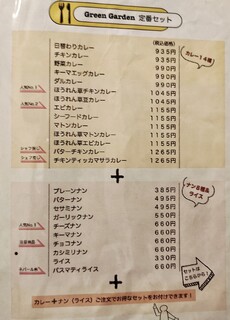 Green Garden 定番セット
(税込価格)
カレー14種!
日替わりカレー 935円
チキンカレー 935円
野菜カレー 990円
キーマエッグカレー 990円
ダルカレー 990円
人気No.1 ほうれん草チキンカレー 1045円
ほうれん草豆カレー 1045円
人気No.2 エビカレー 1155円
シーフードカレー 1155円
マトンカレー 1155円
ほうれん草マトンカレー 1155円
ほうれん草エビカレー 1155円
バターチキンカレー 1265円
チキンティッカマサラカレー 1265円
+
ナン8種&ライス
プレーンナン 385円
バターナン 495円
セサミナン 495円
ガーリックナン 550円
人気No.1 チーズナン 660円
キーマナン 660円
チョコナン 660円
カシミリナン 660円
ライス 330円
バスマティライス 660円
+
セットはこちらから!
カレー+ナン(ライス)ご注文でお得なセットをお付けできます!